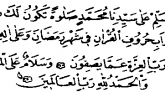 عَلَى سَيِّدِنَا مُحَمَّدٍ صَلٰوةً تَكُونُ لَكَ
بِحُرُوفِ الْقُرْاٰنِ فِي شَهْرِ رَمَضَانَ وَعَلَى
رَبِّ الْعِزَّةِ عَمَّا يَصِفُونَ وَسَلَامٌ عَلَى
وَالْحَمْدُ لِلّٰهِ رَبِّ الْعَالَمِينَ